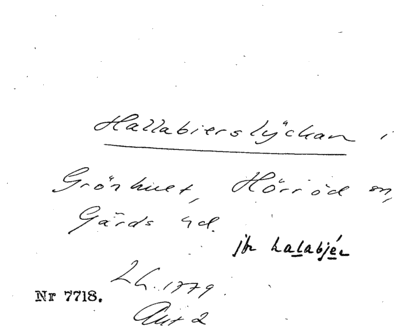 Hallabierslyckan i
Grönhult, Hörröd sn,
Gärds hd.
jfr Lalabjér
L.h. 1779.
Nr 7718.
Akt 2